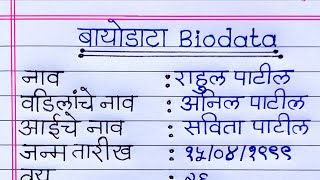 बायोडाटा Biodata
नाव : राहुल पाटील
वडिलांचे नाव : अनिल पाटील
आईचे नाव : सविता पाटील
जन्म तारीख : १५/०४/१९९९